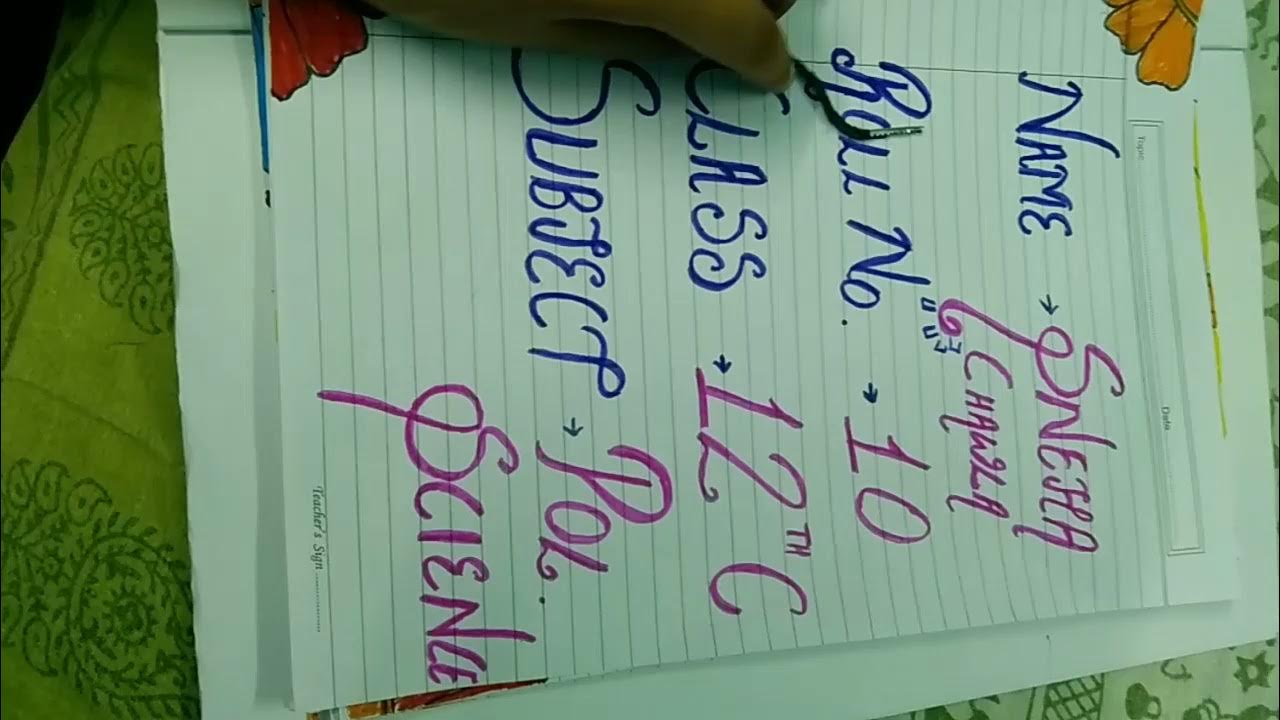 Topic
Date
NAME → SNEHA
CHAWLA
ROLL NO. → 10
CLASS → 12TH C
SUBJECT → POL.
SCIENCE
Teacher's Sign ..............